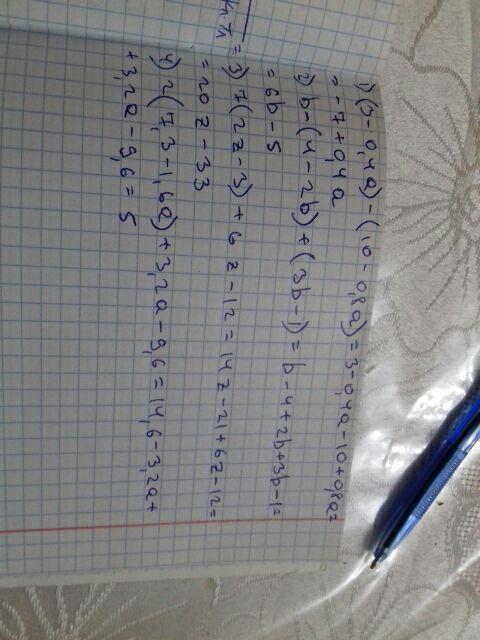 1) (3-0,4a)-(10-0,8a)=3-0,4a-10+0,8a=
=-7+0,4a
2) b-(4-2b)+(3b-1)=b-4+2b+3b-1=
=6b-5
=3) 7(2z-3)+6z-12=14z-21+6z-12=
=20z-33
4) 2(7,3-1,6a)+3,2a-9,6=14,6-3,2a+
+3,2a-9,6=5